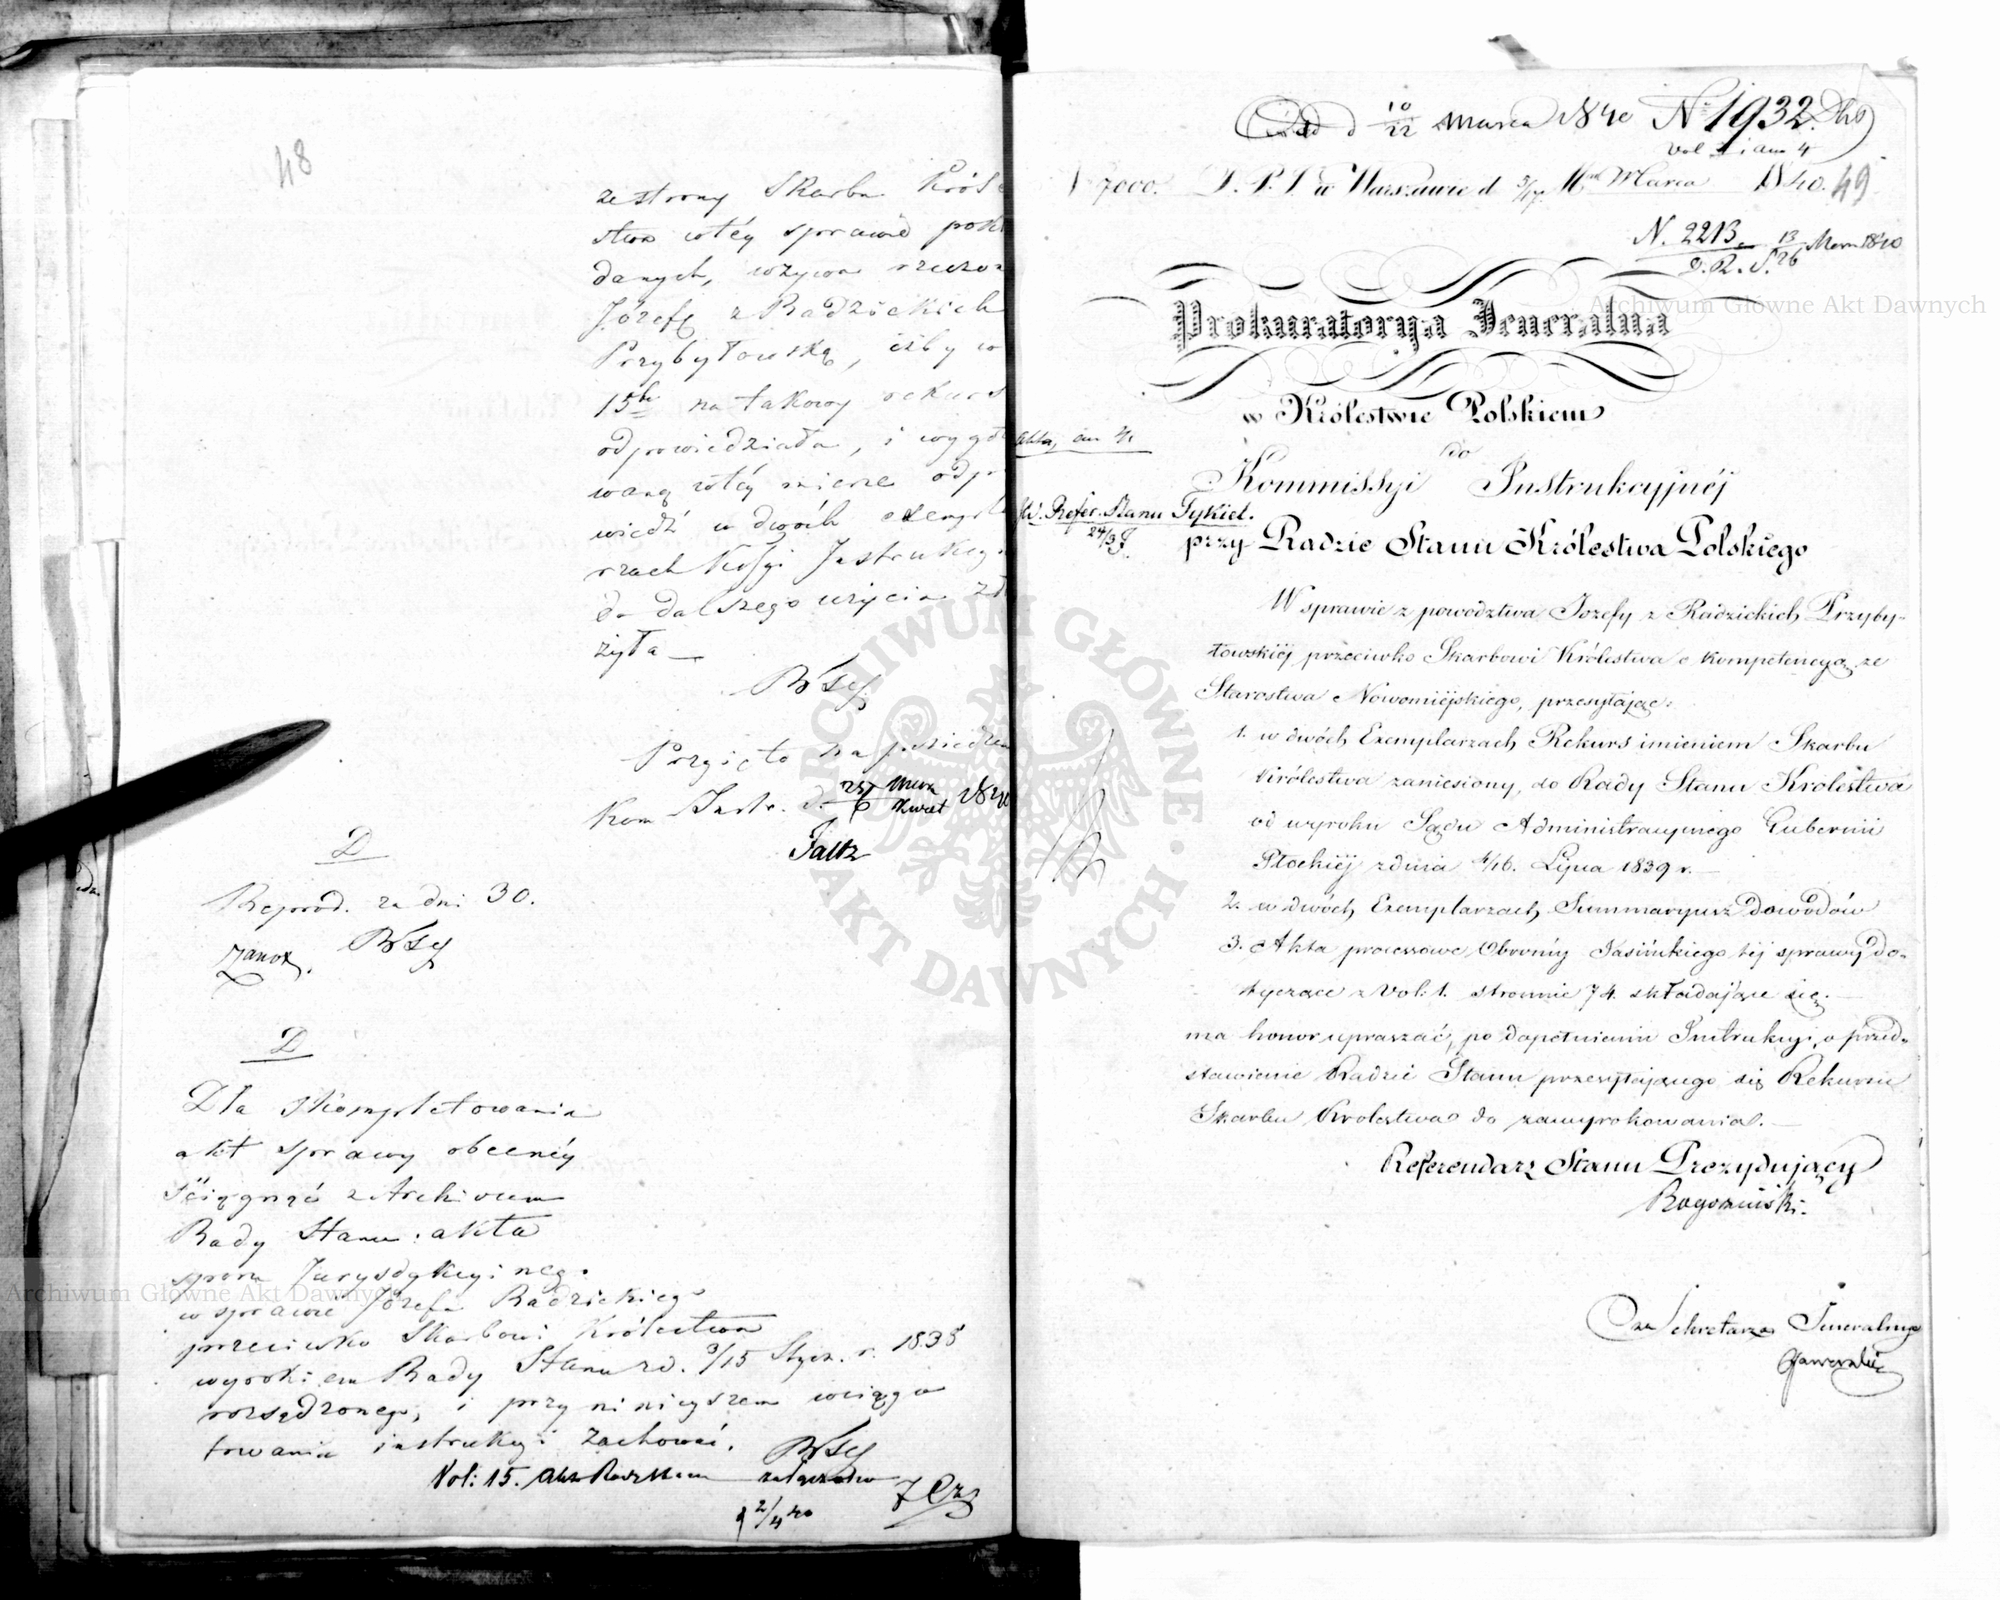 48
ze strony Skarbu Króle
stwa w téy sprawie poda
danych, wzywa rzeczo
Józefę z Radzickich
Przybyłowską, iżby w
15tu na takowy rekurs
odpowiedziała, i wygoto
waną w téy mierze odpo
wiedź w dwóch exempla
rzach Kośyi Instrukcyi
do dalszego użycia zł
żyła —
Przyięto na posiedzen
Kom Instr. d. 25 Marca 1840
6 Kwiet
Faltz
D
Reprod. za dni 30.
D
Dla skompletowania
akt sprawy obecnéy
ściągnąć z Archivum
Rady Stanu akta
sporu Jurysdykcyinego
w sprawie Józefa Radzickiego
przeciwko Skarbowi Królestwa
wyrokiem Rady Stanu z d. 3/15 Stycz. r. 1835
rozsądzonego, i przy niniejszem w ciągu
trwania instrukcyi zachować.
Vol: 15. Akt Rady Stanu załączono
2/4 40
d 10/22 Marca 1840 N 1932.
vol 1 i am 4
N 7000. D. P. D. w Warszawie d 5/17 Marca 1840. 49
N. 2213. 13/26 Marca 1840
D. R. S.
Prokuratorya Jeneralna
w Królestwie Polskiem
do
akta, am 4
Kommissyi Instrukcyjnéj
JW. Refer. Stanu Tykiel.
24/3
przy Radzie Stanu Królestwa Polskiego
W sprawie z powództwa Józefy z Radzickich Przyby-
łowskiéj przeciwko Skarbowi Królestwa o kompetencyą ze
Starostwa Nowomiéjskiego, przesyłając:
1. w dwóch Exemplarzach Rekurs imieniem Skarbu
Królestwa zaniesiony, do Rady Stanu Królestwa
od wyroku Sądu Administracyjnego Gubernii
Płockiéj z dnia 4/16. Lipca 1839 r. —
2. w dwóch Exemplarzach Summaryusz dowodów
3. Akta processowe Obrońcy Jasińskiego téj sprawy do-
tyczące z Vol: 1. stronnic 74. składające się. —
ma honor upraszać, po dopełnieniu Instrukcyi, o przed-
stawienie Radzie Stanu przesyłającego się Rekursu
Skarbu Królestwa do zawyrokowania. —
Referendarz Stanu Prezydujący
Rogoziński.
za Sekretarza Jeneralnego
Archiwum Główne Akt Dawnych
Archiwum Główne Akt Dawnych
ARCHIWUM GŁÓWNE AKT DAWNYCH